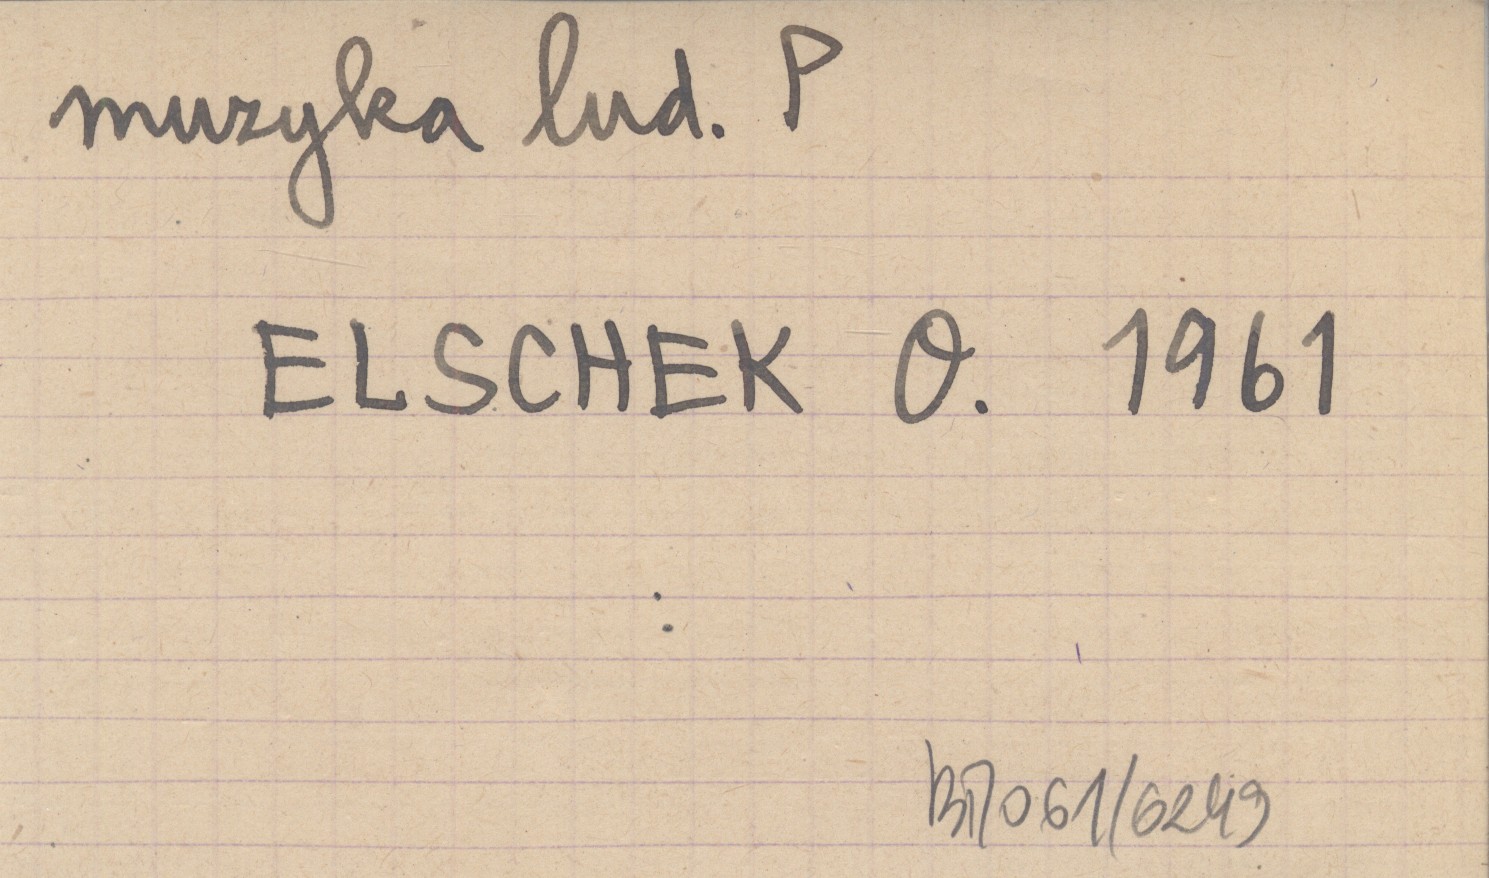 muzyka lud. P
ELSCHEK O. 1961
061/6249